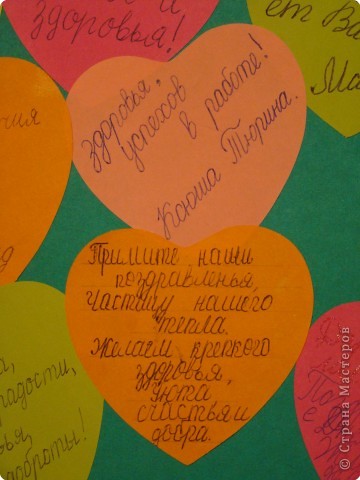 и
здоровья!
ет Ва
Ма
Здоровья,
успехов
в работе!
Ксюша Тюрина.
Примите наши
поздравленья,
Частицу нашего
тепла.
Желаем крепкого
здоровья,
уюта
счастья и
добра.
радости,
доброты!
© Страна Мастеров